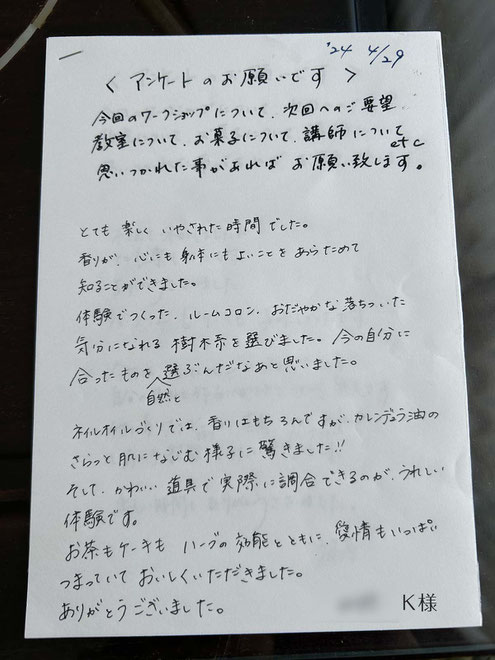 '24 4/29
< アンケートのお願いです >
今回のワークショップについて、次回へのご要望
教室について、お菓子について、講師について
etc
思いつかれた事があれば お願い致します。
とても 楽しく いやされた時間でした。
香りが、心にも 身体にもよいことを あらためて
知ることができました。
体験でつくった、ルームコロン、おだやかな落ちついた
気分になれる 樹木系を選びました。今の自分に
合ったものを 選ぶんだなあと思いました。
自然と
ネイルオイルづくりでは、香りはもちろんですが、カレンデュラ油の
さらっと 肌になじむ 様子に 驚きました!!
そして、かわいい 道具で 実際に調合できるのが、うれしい
体験です。
お茶もケーキも ハーブの効能とともに、愛情もいっぱい
つまっていて おいしくいただきました。
ありがとうございました。
K様